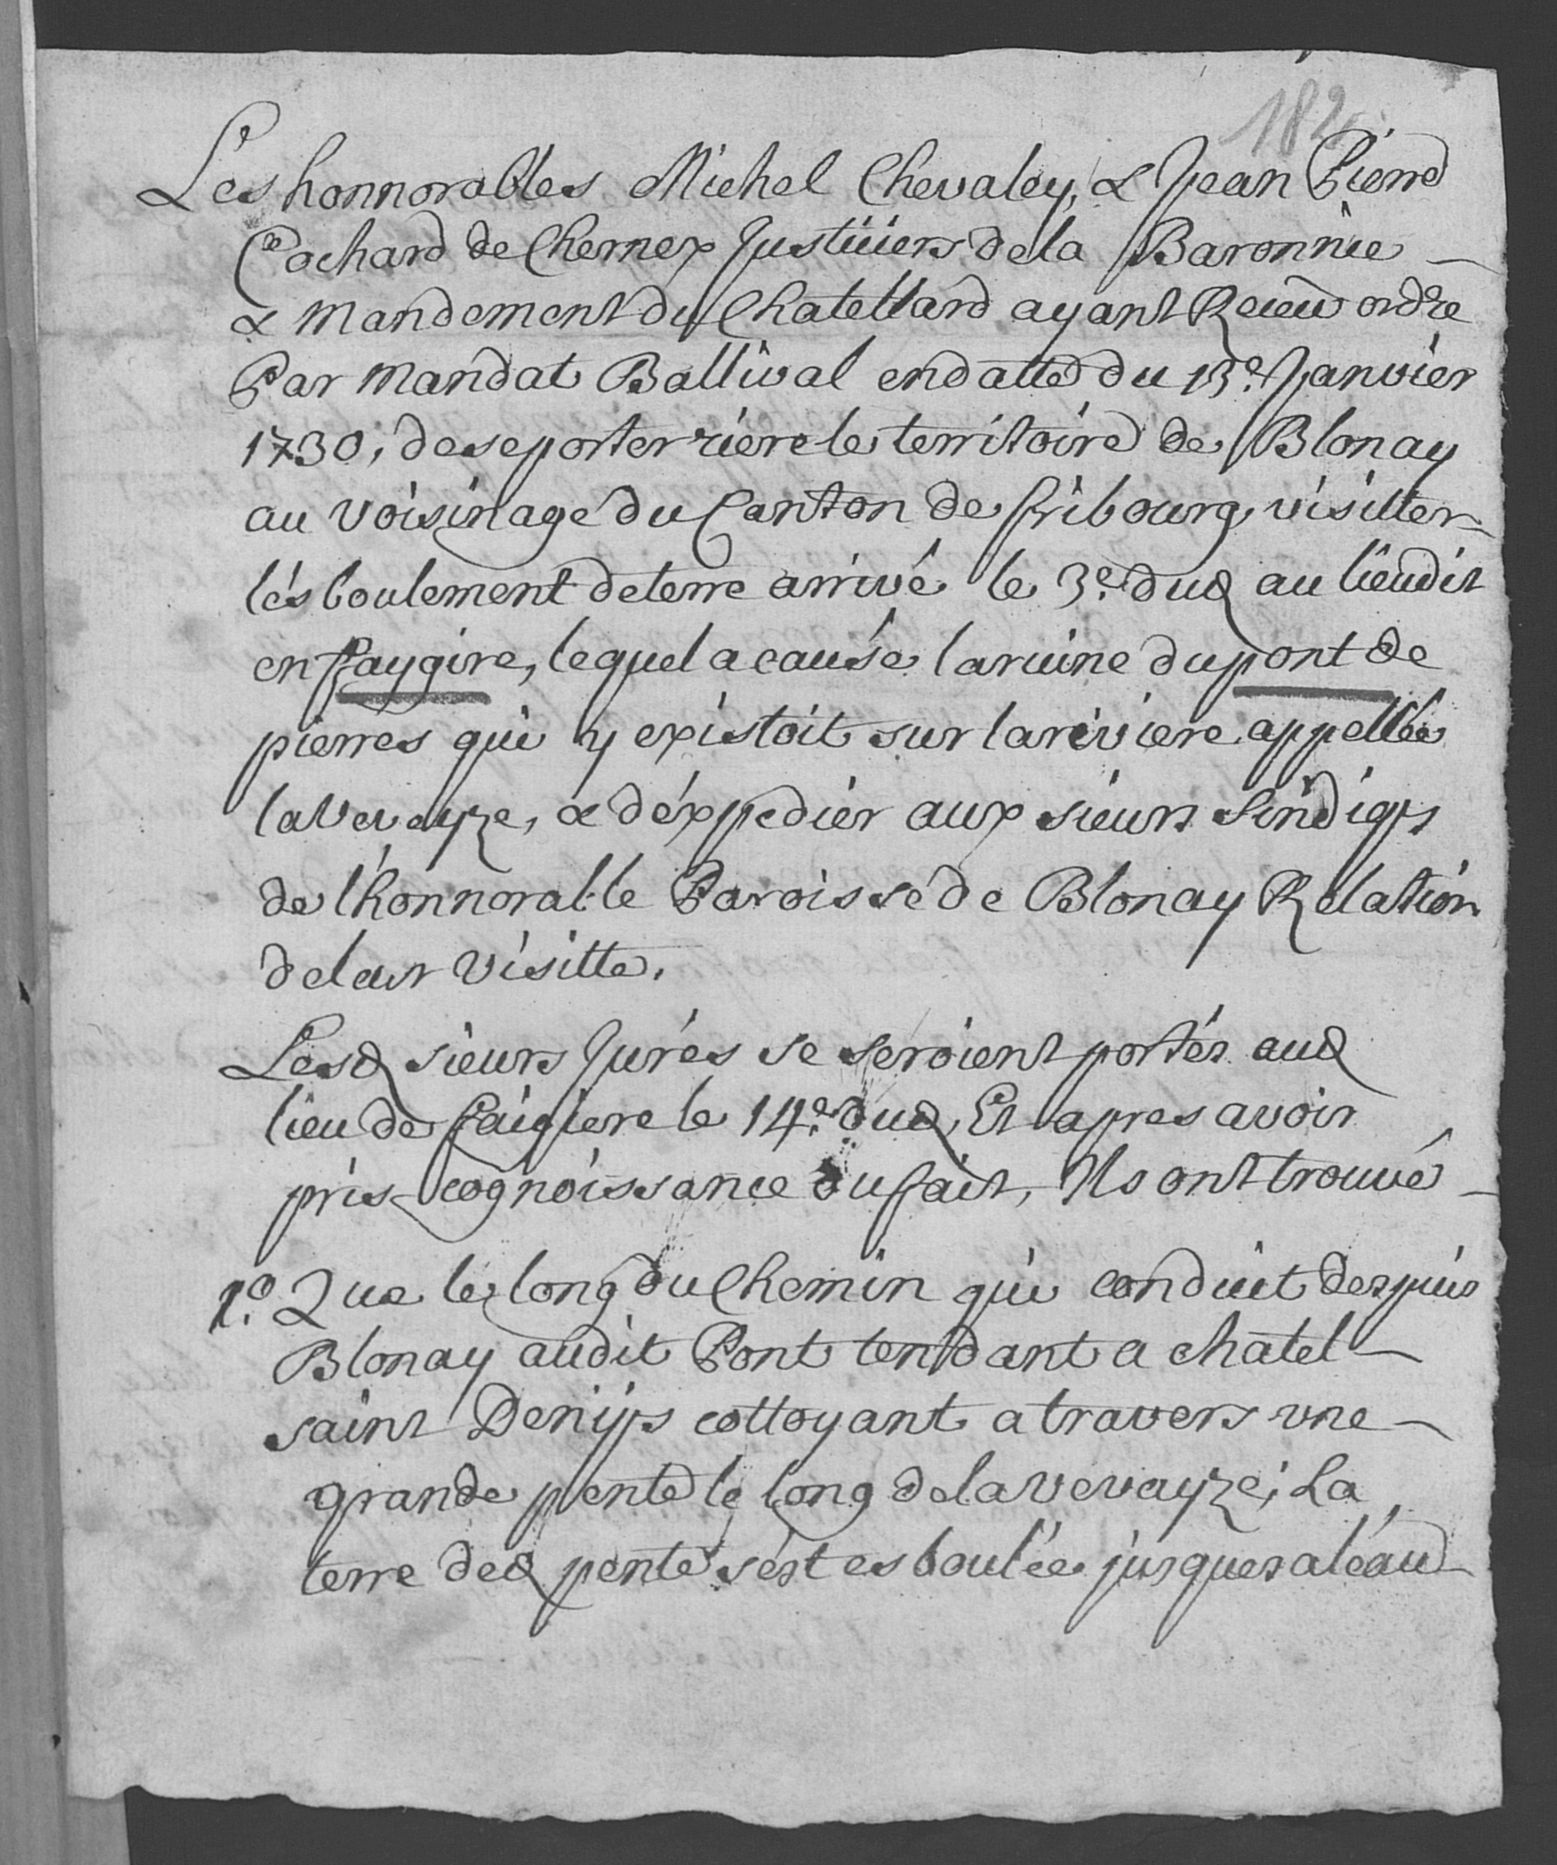 182
Les honnorables Michel Chevaley, & Jean Pierre
Cochard de Chernex Justiciers de la Baronnie
& Mandement du Chatellard ayant Receu ordre
Par Mandat Ballival en datte du 13e. Janvier
1730, de se porter riere le territoire de Blonay
au voisinage du Canton de fribourg, visitter
lésboulement de terre arrivé le 3e. dud au lieu dit
en faygire, lequel a causé la ruine du pont de
pierres qui y existoit sur la riviere appellée
la Vevayze, & d'éxppedier aux sieurs Sindiqs
de l'honnorable Paroisse de Blonay Relation
de leur visitte.
Lesd sieurs Jurés se seroient portés aud
lieu de faigiere le 14e. dud, Et apres avoir
pris cognoissance du fait, Ils ont trouvé
1o. Que le long du Chemin qui conduit despuis
Blonay audit Pont tendant a chatel
saint Denys cottoyant a travers vne
grande pente le long de la Vevayze, La
terre ded pente s'est esboulée jusques a léau